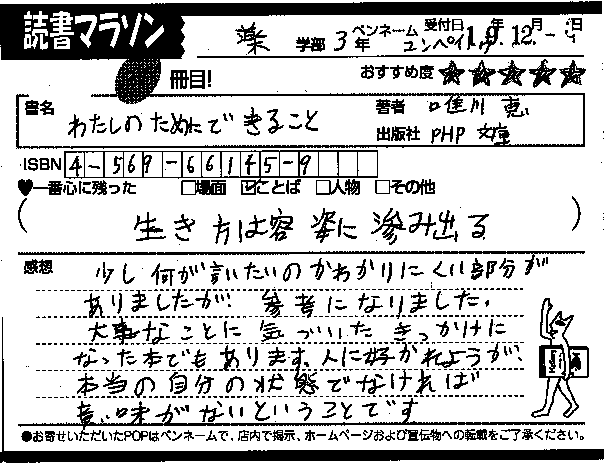 読書マラソン
薬 学部 3年 ペンネーム 受付日 年 12月 日
冊目!
おすすめ度 ★★★★★
書名 わたしのためにできること
著者 唯川 恵
出版社 PHP 文庫
ISBN 4-569-66145-9
♥一番心に残った □場面 ☑ことば □人物 □その他
(生き方は容姿に滲み出る)
感想 少し何が言いたいのかわかりにくい部分が
ありましたが、参考になりました。
大事なことに気づいたきっかけに
なった本でもあります。人に好かれようが、
本当の自分の状態でなければ
意味がないということです
●お寄せいただいたPOPはペンネームで、店内で掲示、ホームページおよび宣伝物への転載をご了承ください。